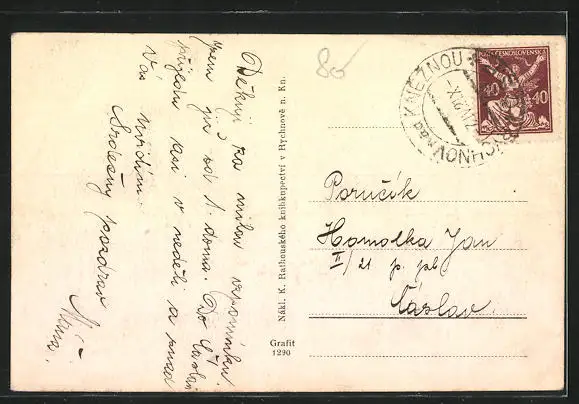 Děkuji za milou vzpomínku.
jsem již od 1. doma. Do Čáslavi
přijedu asi v neděli a snad
Vás uvidím.
Srdečný pozdrav
Máňa.
80
Nákl. K. Rathouského knihkupectví v Rychnově n. Kn.
Grafit
1290
POŠTA ČESKOSLOVENSKÁ
40 40
RYCHNOV nad KNĚŽNOU
Poručík
Homolka Jan
II/21 p. pb
Čáslav.